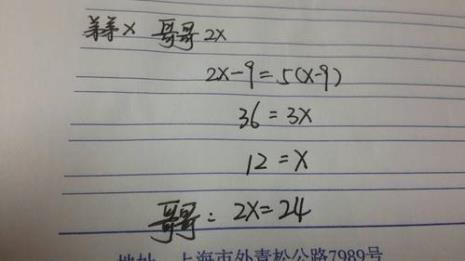 弟弟x 哥哥2x
2x-9=5(x-9)
36=3x
12=x
哥哥：2x=24
地址 上海市外青松公路7989号